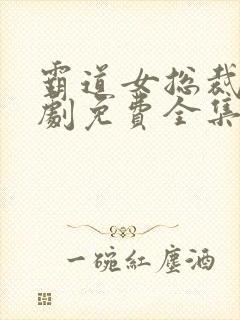 霸道女总裁
劇免費全集
一碗紅塵酒